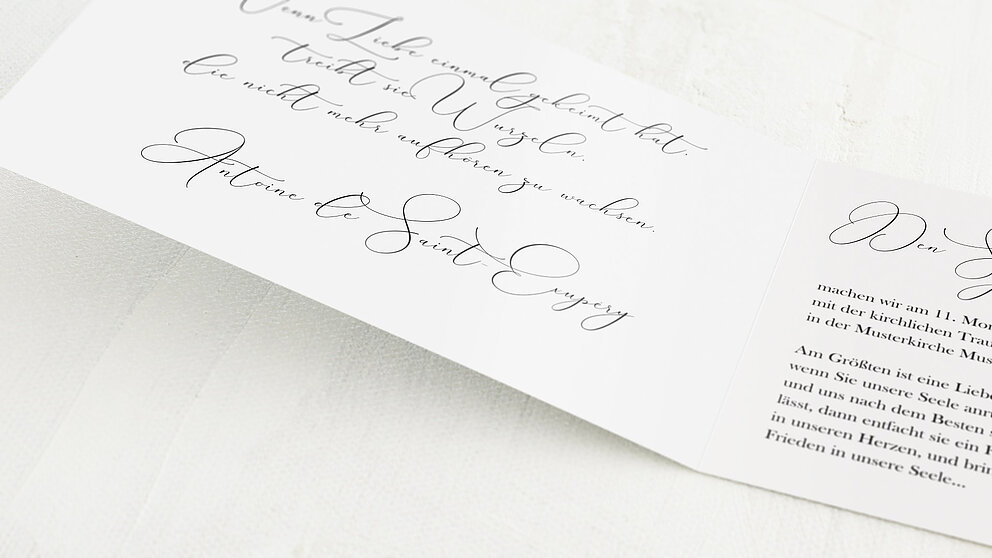 Wenn Liebe einmal gekeimt hat,
treibt sie Wurzeln,
die nicht mehr aufhören zu wachsen.
Antoine de Saint-Exupéry
Den
machen wir am 11.
mit der kirchlichen
in der Musterkirche
Am Größten ist eine
wenn Sie unsere Seele
und uns nach dem Besten
lässt, dann entfacht sie ein
in unseren Herzen, und
Frieden in unsere Seele...